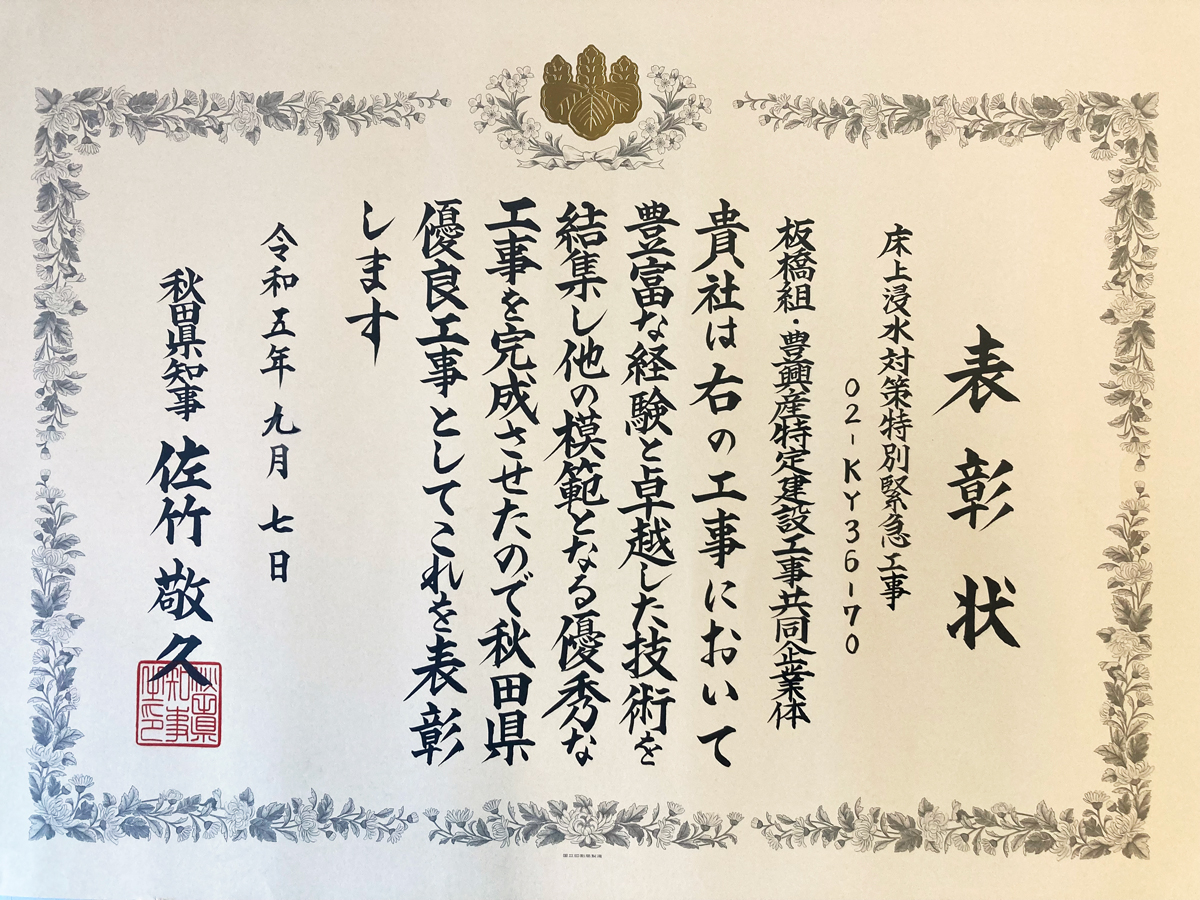 表彰状
床上浸水対策特別緊急工事
02-KY36-70
板橋組・豊興産特定建設工事共同企業体
貴社は右の工事において
豊富な経験と卓越した技術を
結集し他の模範となる優秀な
工事を完成させたので秋田県
優良工事としてこれを表彰
します
令和五年九月七日
秋田県知事 佐竹敬久
秋田県知事之印
国立印刷局製造